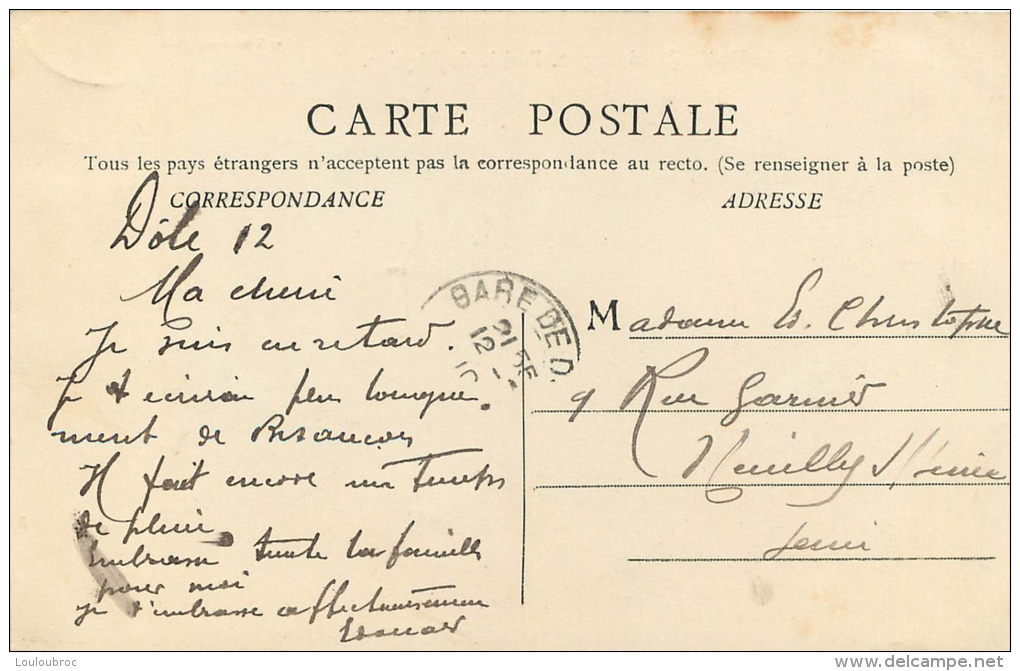 CARTE POSTALE
Tous les pays étrangers n'acceptent pas la correspondance au recto. (Se renseigner à la poste)
CORRESPONDANCE
ADRESSE
Dôle 12
Ma cherie
Je suis en retard.
Je t'ecrirai plus longue
ment de Besancon
Il fait encore un temps
de pluie.
Embrasse toute la famille
pour moi
je t'embrasse affectueusement
Edouard
GARE DE D.
21 35
12 - 1
10
Madame Ed. Christophe
9 Rue Garnier
Neuilly s/ Seine
Seine
Louloubroc
delcampe.net